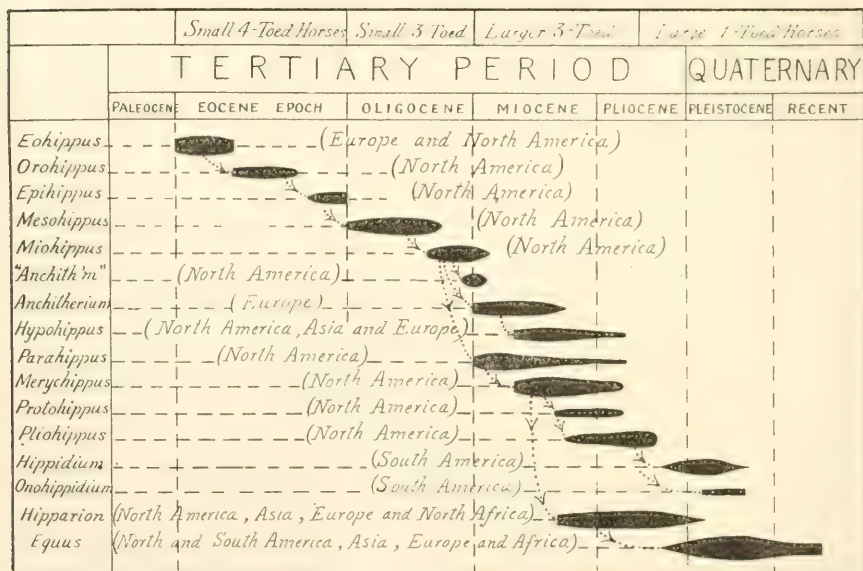 Small 4-Toed Horses Small 3 Toed Larger 3-Toed Large 1-Toed Horses
TERTIARY PERIOD QUATERNARY
PALEOCENE EOCENE EPOCH OLIGOCENE MIOCENE PLIOCENE PLEISTOCENE RECENT
Eohippus (Europe and North America)
Orohippus (North America)
Epihippus (North America)
Mesohippus (North America)
Miohippus (North America)
"Anchith'm" (North America)
Anchitherium (Europe)
Hypohippus (North America, Asia and Europe)
Parahippus (North America)
Merychippus (North America)
Protohippus (North America)
Pliohippus (North America)
Hippidium (South America)
Onohippidium (South America)
Hipparion (North America, Asia, Europe and North Africa)
Equus (North and South America, Asia, Europe and Africa)